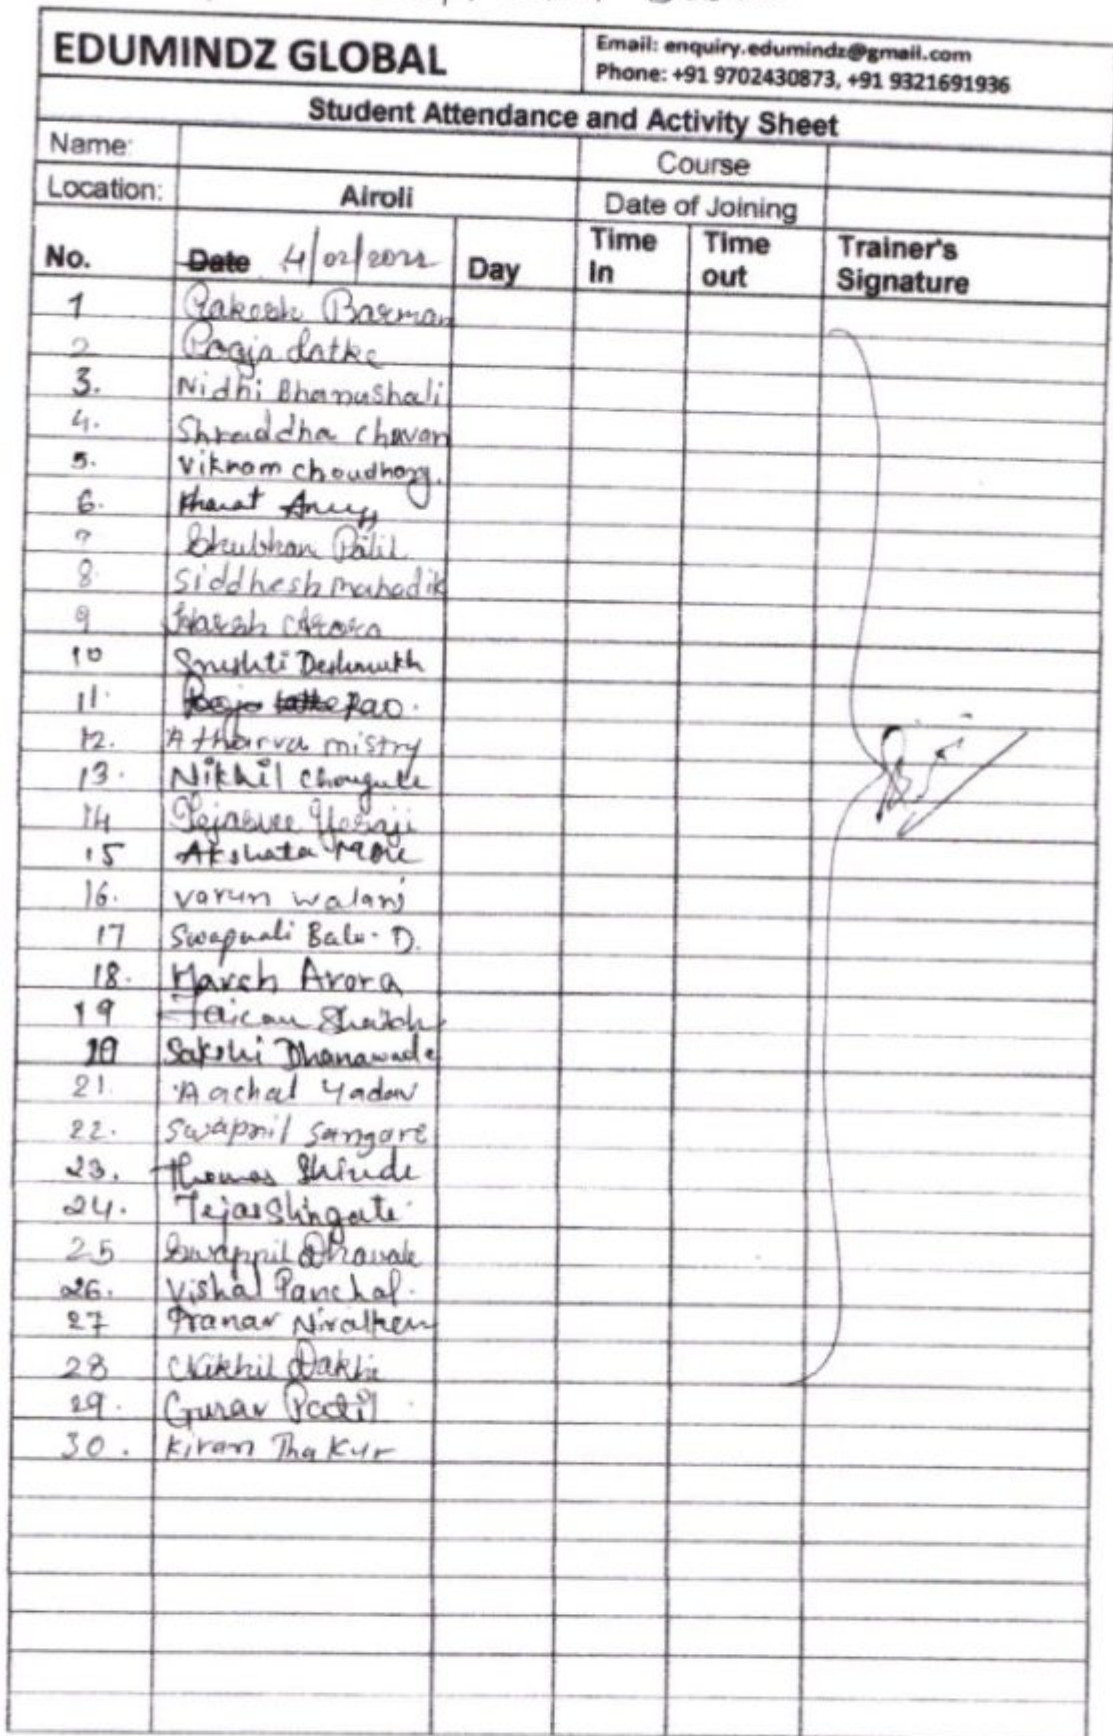 EDUMINDZ GLOBAL
Email: enquiry.edumindz@gmail.com
Phone: +91 9702430873, +91 9321691936
Student Attendance and Activity Sheet
Name: Course
Location: Airoli Date of Joining
No. Date 4/02/2022 Day Time In Time out Trainer's Signature
1 Rakesh Barman
2 Pooja Latke
3. Nidhi Bhanushali
4. Shraddha Chavan
5. Vikram Choudhary.
6. Kharat
7 Shubham Patil
8. Siddhesh Mahadik
9 Harsh Arora
10 Srushti Deshmukh
11. Pooja Latke Rao.
12. Atharva mistry
13. Nikhil Chougule
14 Tejasvee Yesaji
15 Akshata More
16. varun walanj
17 Swapnali Balu. D.
18. Harsh Arora
19 Shaikh
20 Sakshi Dhanawade
21. Aachal Yadav
22. Swapnil Sangare
23. Thomas Shinde
24. Tejas Shingate
25 Swappnil Dhavale
26. Vishal Panchal.
27 Pranav
28 Nikhil
29. Gurav Patil
30. Kiran Thakur